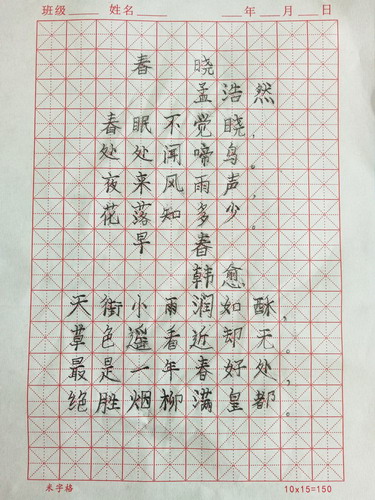 班级 姓名 年 月 日
春 晓
孟浩然
春眠不觉晓，
处处闻啼鸟。
夜来风雨声，
花落知多少。
早春
韩愈
天街小雨润如酥，
草色遥看近却无。
最是一年春好处，
绝胜烟柳满皇都。
米字格 10x15=150